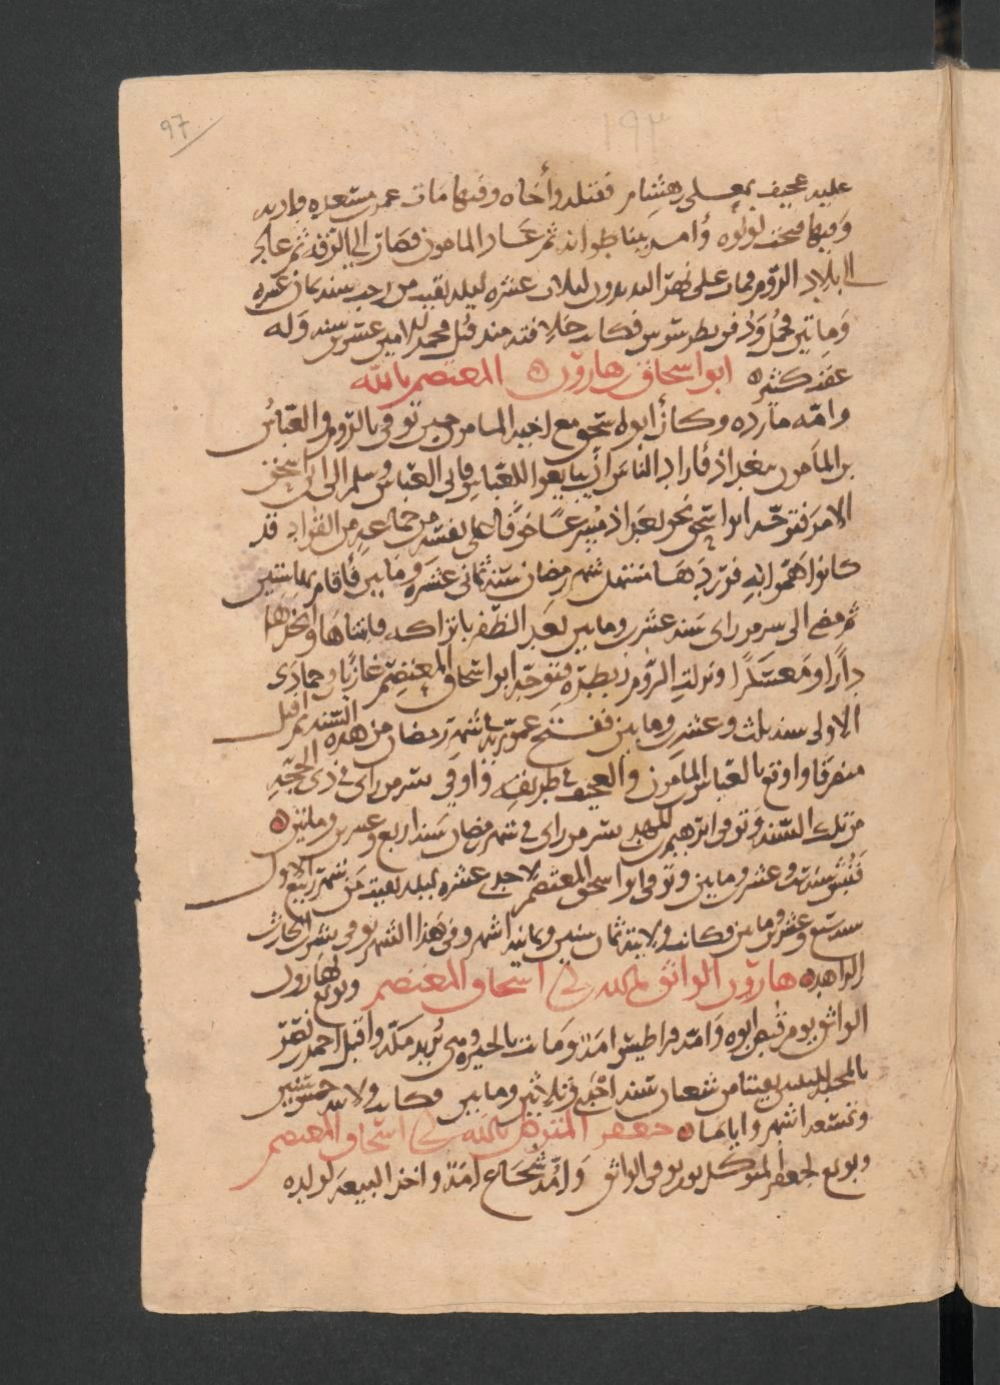 97
١٩٣
عليه عجيف بعلي بن هشام فقتله وأخاه وفيها مات عمرو بن مسعده باذنه
وفيها فتحت لولوه وأمر ببنا طوانه ثم عاد المامون فصار الي الرقه ثم عاد
الى بلاد الروم فمات على نهر البدبدون لثلاث عشره ليله بقيت من رجب سنه ثمان عشره
وماتين وحمل ودفن بطرسوس فكانت خلافته منذ قتل محمد الامين عشرين سنه وله
عقب كثير ابو اسحاق بن هارون المعتصم بالله
وامه مارده وكان أبو اسحق مع اخيه المامون حين توفي بالروم والعباس
بن المأمون ببغداذ فأراد الناس أن يبايعوا للعباس فابى العباس وسلم الى ابي اسحق
الامر فتوجه ابو اسحق نحو بغداذ مسرعًا خوفًا على نفسه من جماعه من القواد قد
كانوا هموا به فورد بها مستهل شهر رمضان سنة ثماني عشره وماتين فأقام بها سنتين
ثم مضى الى سر من راى سنه عشرين وماتين بعد الظفر باتراكه فابتناها واتخذها
دارًا ومعسكرًا ونزلت الروم زبطره فتوجه ابو اسحاق المعتصم غازيًا في جمادى
الاولى سنه ثلث وعشرين وماتين ففتح عموريه في شهر رمضان من هذه السنه ثم اقبل
منصرفا واوقع بالعباس بن المأمون والعجيف في طريقه ووافى سر من راى في ذي الحجة
من تلك السنه وتوفي ابرهيم بن المهدي بسر من راى في شهر رمضان سنه اربع وعشرين وماتين
سنه ست وعشرين وماتين وتوفي ابو اسحق المعتصم لاحدى عشره ليله بقيت من شهر ربيع الاول
سنه سبع وعشرين وماتين وكانت ولايته ثمان سنين وثمانيه اشهر وفي هذا الشهر توفي بشر بن الحارث
الزاهد هارون الواثق بالله بن اسحاق المعتصم وبويع لهارون
الواثق يوم قبض ابوه وامه قراطيس امة وماتت بالحيره وهي تريد مكة واقبل احمد بن نصر
بالمحنه لليلتين بقيتا من شعبان سنه احدى وثلاثين وماتين وكانت ولايته خمس سنين
وتسعه اشهر وايامًا جعفر المتوكل بالله بن اسحاق المعتصم
وبويع لجعفر المتوكل يوم توفي الواثق وأمه شجاع امة واخذ البيعة لولده